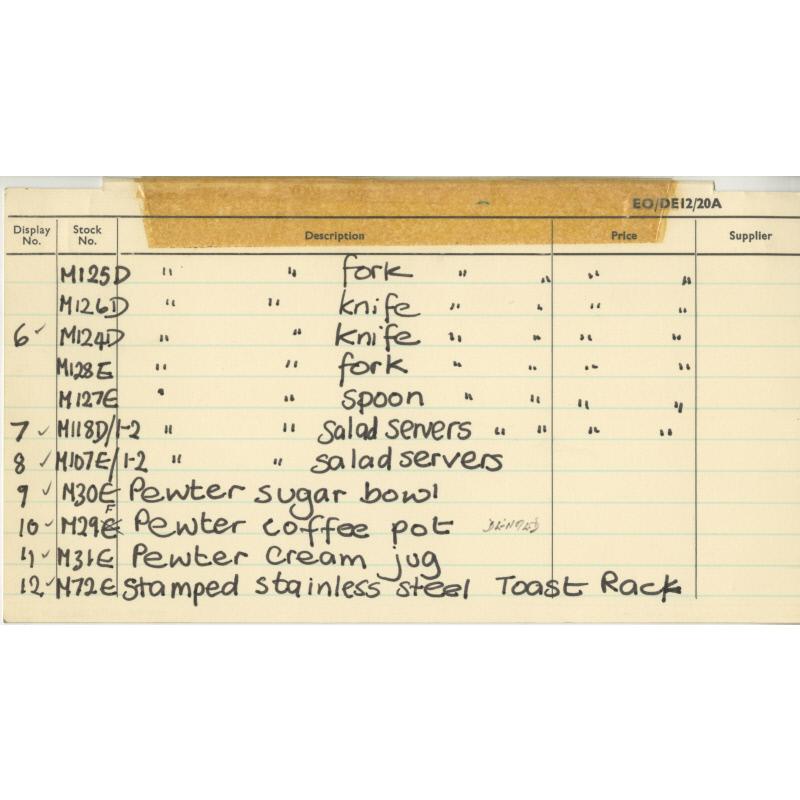 EO/DE12/20A
Display No. Stock No. Description Price Supplier
M125D " " fork " " " "
M126D " " knife " " " "
6 ✓ M124D " " knife " " " "
M128E " " fork " " " "
M127E " " spoon " " " "
7 ✓ M118D/1-2 " " salad servers " " " "
8 ✓ M107E/1-2 " " salad servers
9 ✓ M30E Pewter sugar bowl
10 ✓ M29F Pewter coffee pot
11 ✓ M31E Pewter cream jug
12 ✓ M72E Stamped stainless steel Toast Rack